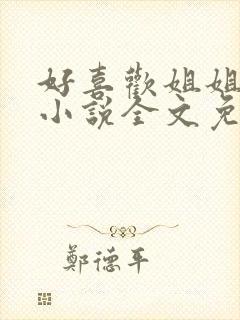 好喜歡姐姐
小說全文免
鄭德平